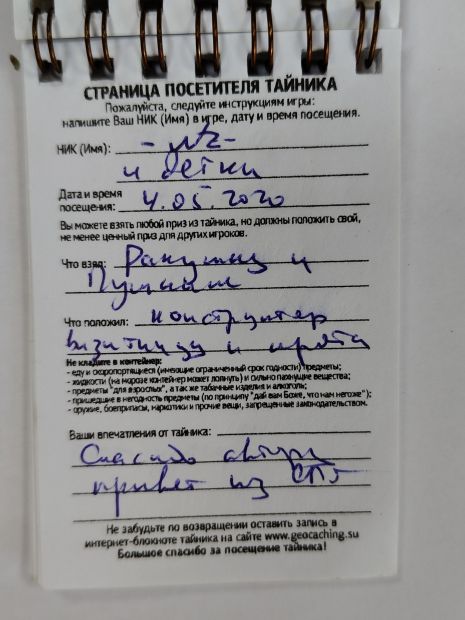 СТРАНИЦА ПОСЕТИТЕЛЯ ТАЙНИКА
Пожалуйста, следуйте инструкциям игры:
напишите Ваш НИК (Имя) в игре, дату и время посещения.
НИК (Имя):
и детки
Дата и время
посещения: 4.05.2020
Вы можете взять любой приз из тайника, но должны положить свой,
не менее ценный приз для других игроков.
Что взял: Ракушки и
Что положил: конструктор
визитницу и
Не кладите в контейнер:
- еду и скоропортящиеся (имеющие ограниченный срок годности) предметы;
- жидкости (на морозе контейнер может лопнуть) и сильно пахнущие вещества;
- предметы "для взрослых", а так же табачные изделия и алкоголь;
- пришедшие в негодность предметы (по принципу "дай вам Боже, что нам негоже");
- оружие, боеприпасы, наркотики и прочие вещи, запрещенные законодательством.
Ваши впечатления от тайника:
Спасибо автору
привет из СПб
Не забудьте по возвращении оставить запись в
интернет-блокноте тайника на сайте www.geocaching.su
Большое спасибо за посещение тайника!